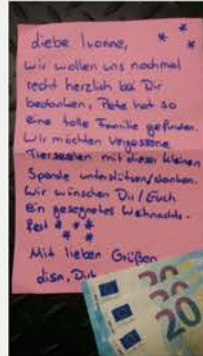 Liebe Ivonne,
wir wollen uns nochmal
recht herzlich bei Dir
bedanken, Pete hat so
eine tolle Familie gefunden.
Wir möchten Vergessene
Tierseelen mit dieser kleinen
Spende unterstützen/danken.
Wir wünschen Dir/Euch
ein gesegnetes Weihnachts-
fest
Mit lieben Grüßen
20